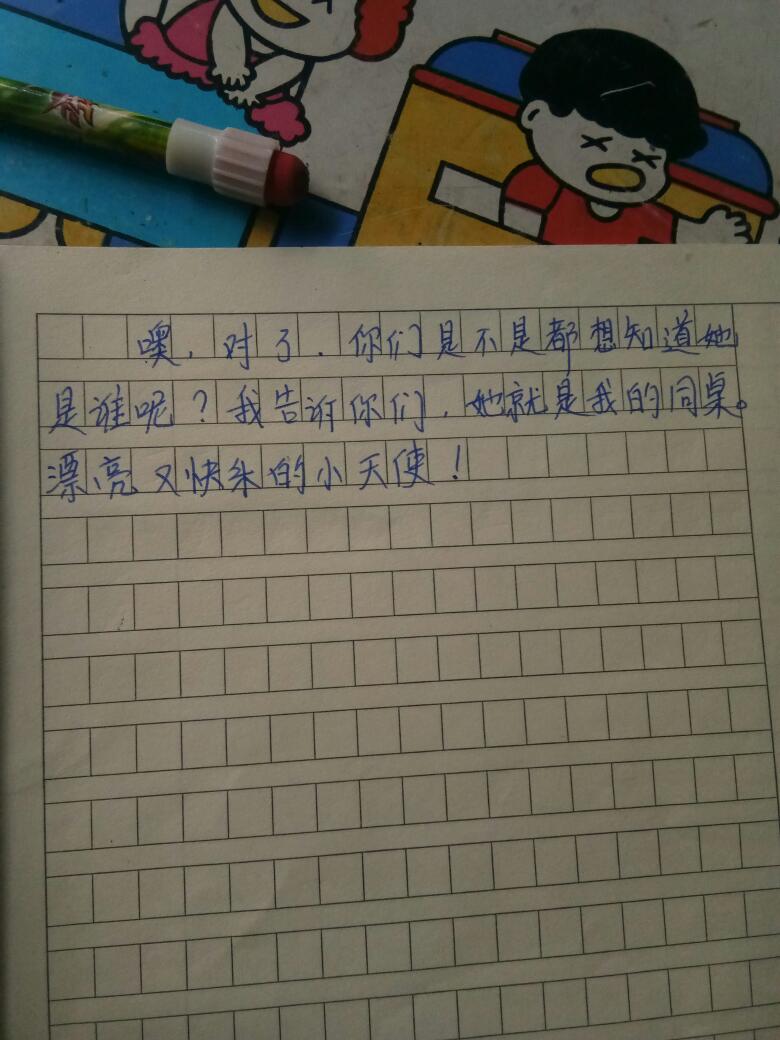 噢，对了，你们是不是都想知道她
是谁呢？我告诉你们，她就是我的同桌。
漂亮又快乐的小天使！